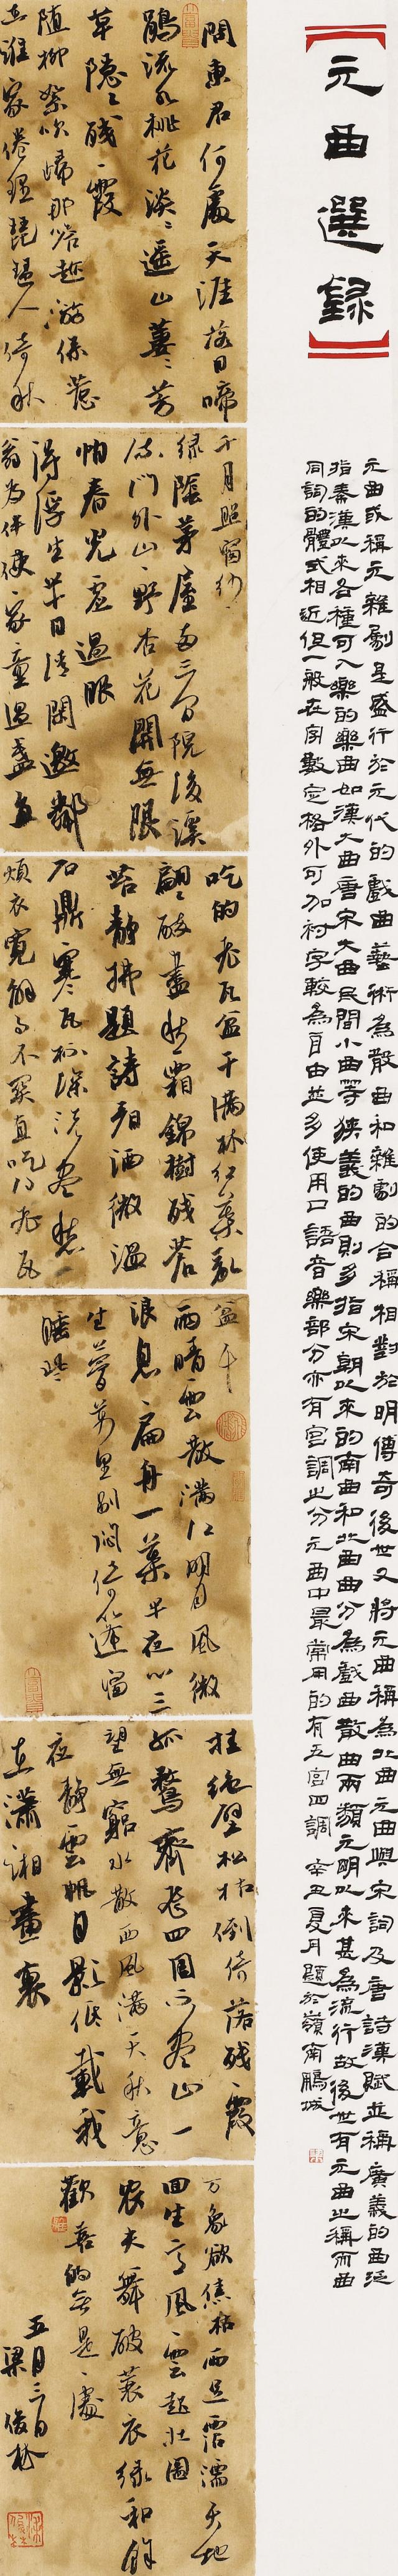 元曲選錄
元曲或稱元雜劇是盛行於元代的戲曲藝術為散曲和雜劇的合稱相對於明傳奇後世又將元曲稱為北曲元曲與宋詞及唐詩漢賦並稱廣義的曲泛
指秦漢以來各種可入樂的樂曲如漢大曲唐宋大曲民間小曲等狹義的曲則多指宋朝以來的南曲和北曲曲分為戲曲散曲兩類元明以來甚為流行故後世有元曲之稱而曲
同詞的體式相近但一般在字數定格外可加襯字較為自由並多使用口語音樂部分亦有宮調之分元曲中最常用的有五宮四調 辛丑夏月題於嶺南鵬城
問東君何處天涯落日啼
鵑流水桃花淡々遙山萋々芳
草隱々殘霞
隨柳絮吹歸那答趁游絲惹
在誰家倦理琵琶人倚秋
千月照窗紗
綠陰茅屋兩三間院後溪
流門外山山野杏花開無限
怕春光虛過眼
得浮生半日清閑邀鄰
翁為伴使家童過盞直
吃的老瓦盆干滿林紅葉亂
翩々醉盡秋霜錦樹殘蒼
苔靜拂題詩看酒微溫
石鼎寒瓦杯深洗盡愁
煩衣寬解事不關直吃得老瓦
盆干
雨晴雲散滿江明月風微
浪息扁舟一葉半夜心三
生夢萬里別悶倚篷窗
睡些
挂絕壁松枯倒倚落殘霞
孤鶩齊飛四圍不盡山一
望無窮水散西風滿天秋意
夜靜雲帆月影低載我
在瀟湘畫裏
万象欲焦枯雨足霑濡天地
回生意風雲起壯圖
農夫舞破蓑衣綠和餘
歡喜的無是處
五月三日
梁俊